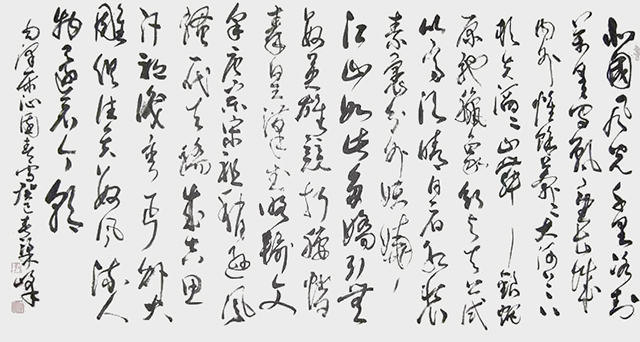 北國風光千里冰封
萬里雪飄望長城
內外惟餘莽〻大河上下
頓失滔〻山舞銀蛇
原馳蠟象欲與天公試
比高須晴日看紅裝
素裹分外妖嬈
江山如此多嬌引無
數英雄競折腰惜
秦皇漢武略輸文
采唐宗宋祖稍遜風
騷一代天驕成吉思
汗祇識彎弓射大
雕俱往矣數風流人
物還看今朝
毛澤東沁園春雪癸巳春峰